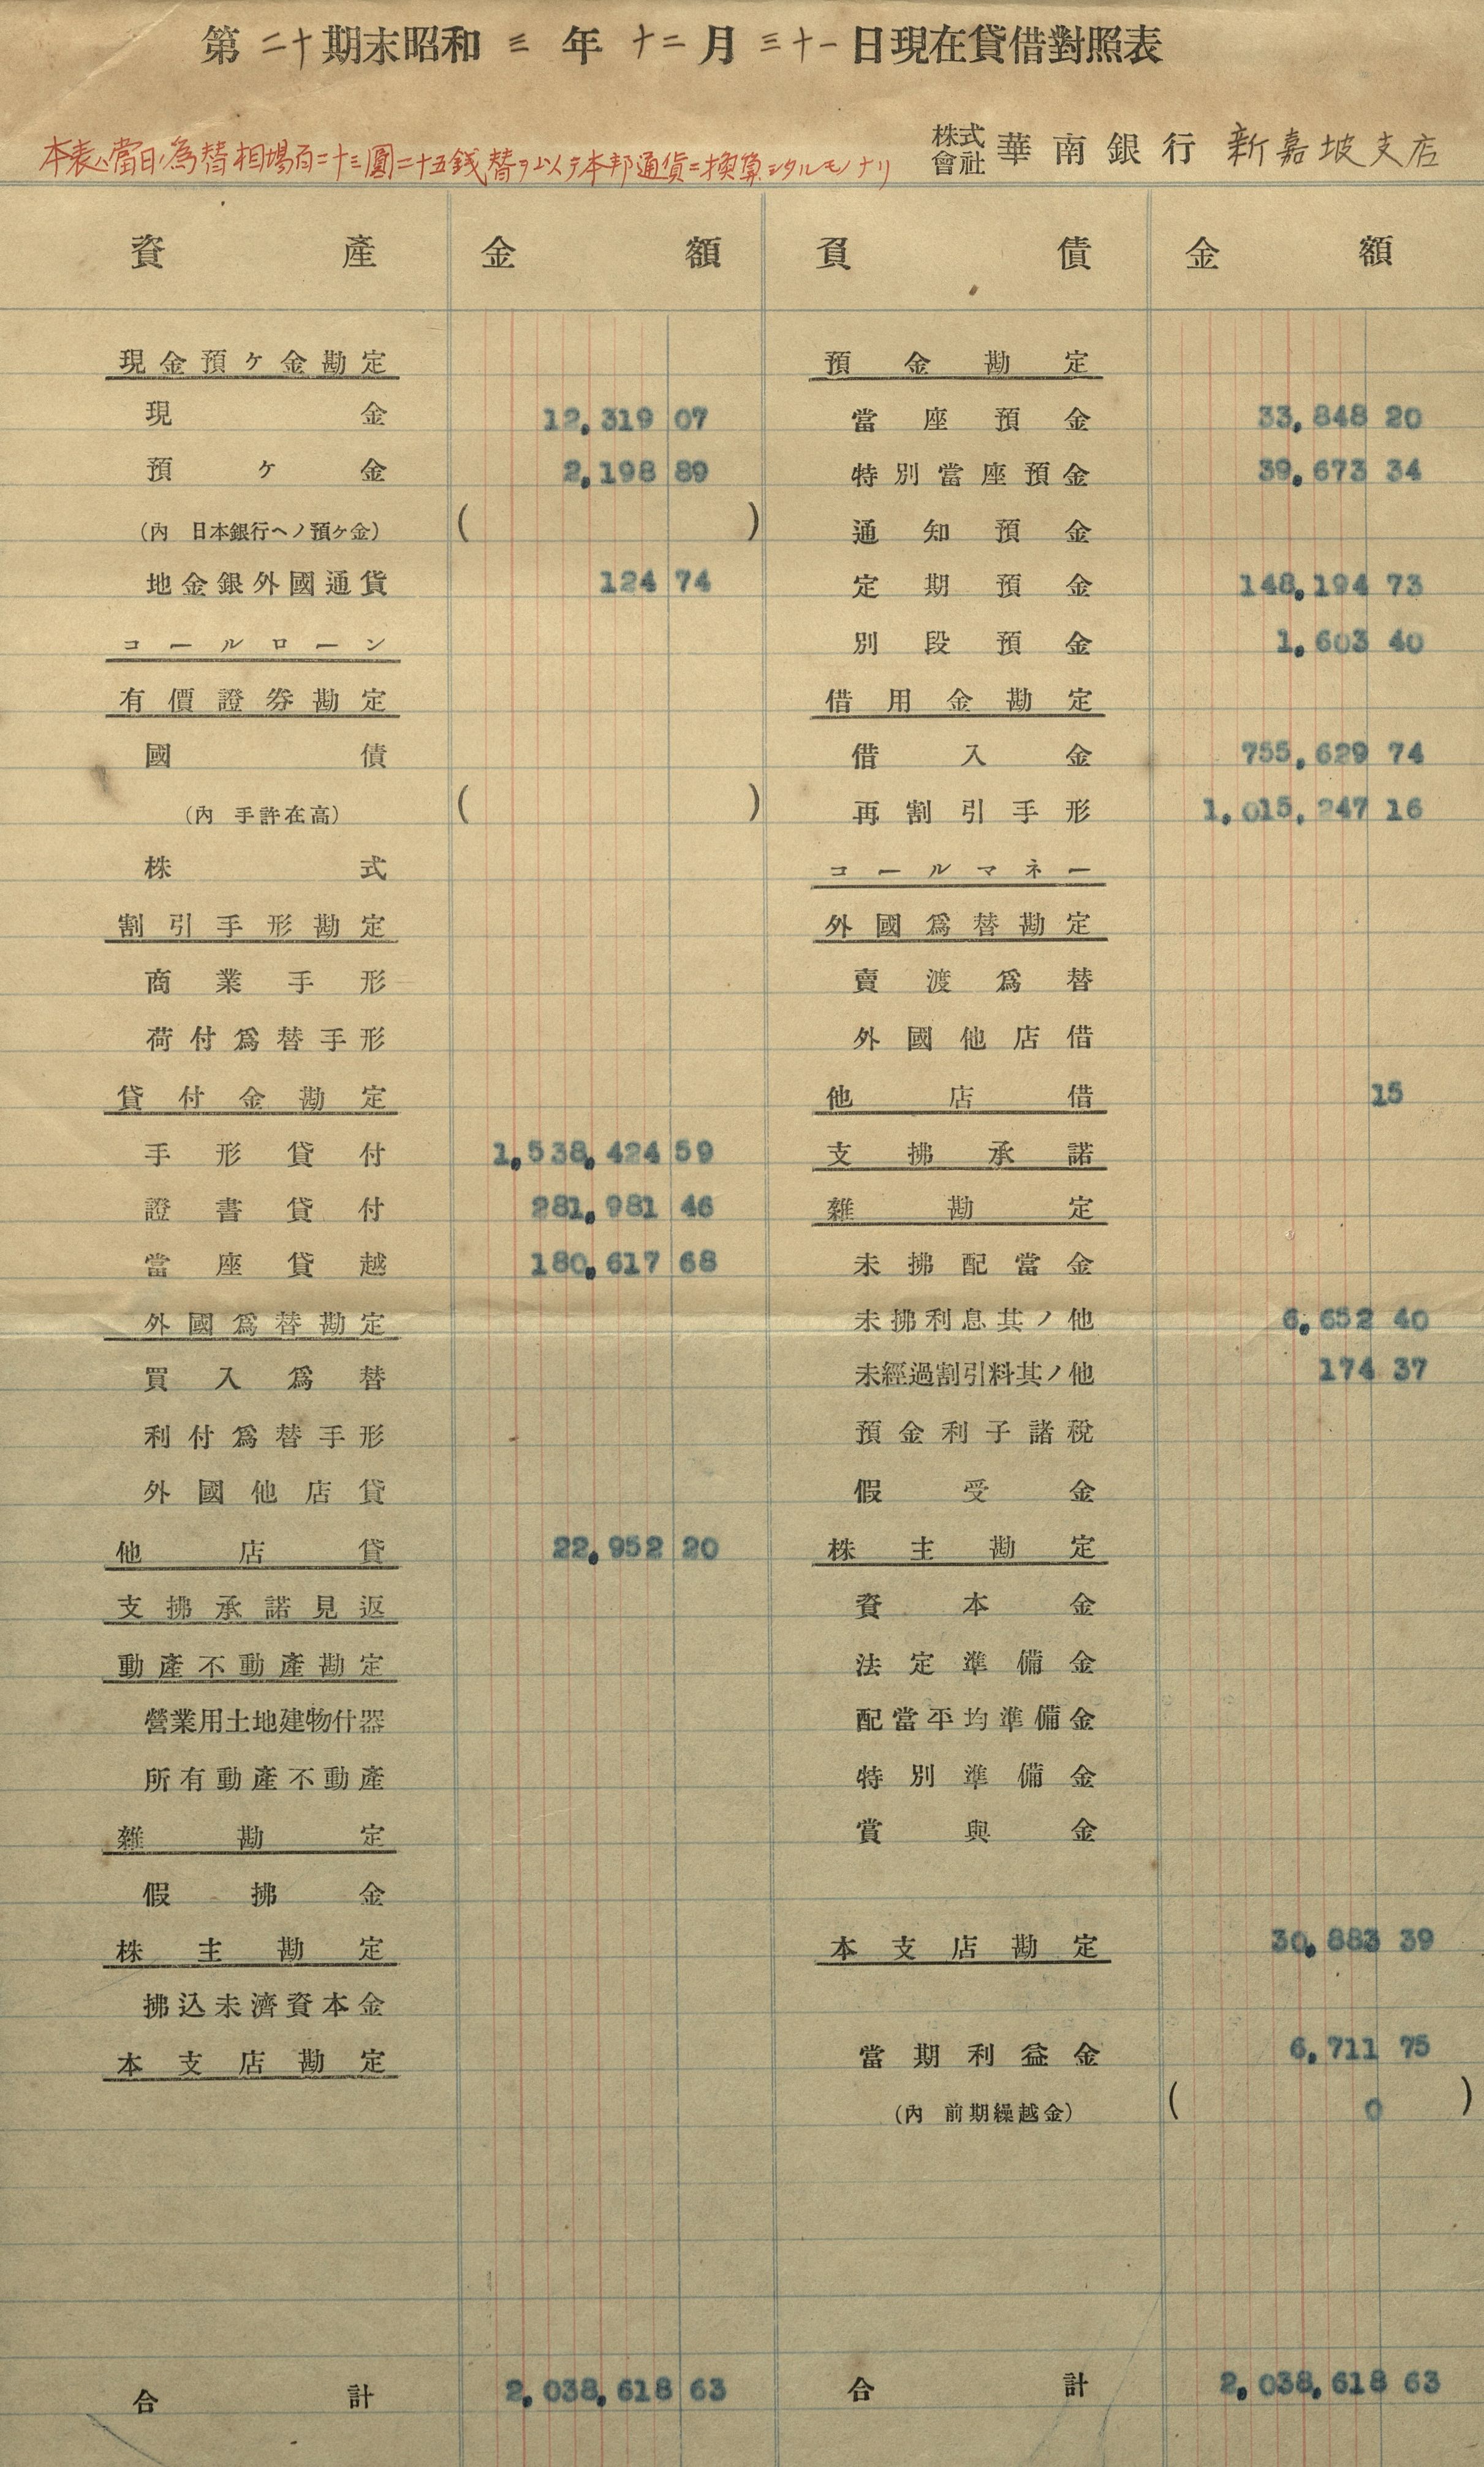 第二十期末昭和三年十二月三十一日現在貸借對照表
株式會社 華南銀行 新嘉坡支店
本表ハ當日ノ為替相場百二十三圓二十五銭替ヲ以テ本邦通貨ニ換算シタルモノナリ
資產 金額 負債 金額
現金預ケ金勘定
現金 12,319 07
預ケ金 2,198 89
(內 日本銀行ヘノ預ケ金) ( )
地金銀外國通貨 124 74
コールローン
有價證券勘定
國債
(內 手許在高) ( )
株式
割引手形勘定
商業手形
荷付爲替手形
貸付金勘定
手形貸付 1,538,424 59
證書貸付 281,981 46
當座貸越 180,617 68
外國爲替勘定
買入爲替
利付爲替手形
外國他店貸
他店貸 22,952 20
支拂承諾見返
動產不動產勘定
營業用土地建物什器
所有動產不動產
雜勘定
假拂金
株主勘定
拂込未濟資本金
本支店勘定
合計 2,038,618 63
預金勘定
當座預金 33,848 20
特別當座預金 39,673 34
通知預金
定期預金 148,194 73
別段預金 1,603 40
借用金勘定
借入金 755,629 74
再割引手形 1,015,247 16
コールマネー
外國爲替勘定
賣渡爲替
外國他店借
他店借 15
支拂承諾
雜勘定
未拂配當金
未拂利息其ノ他 6,652 40
未經過割引料其ノ他 174 37
預金利子諸稅
假受金
株主勘定
資本金
法定準備金
配當平均準備金
特別準備金
賞與金
本支店勘定 30,883 39
當期利益金 6,711 75
(內 前期繰越金) ( 0 )
合計 2,038,618 63